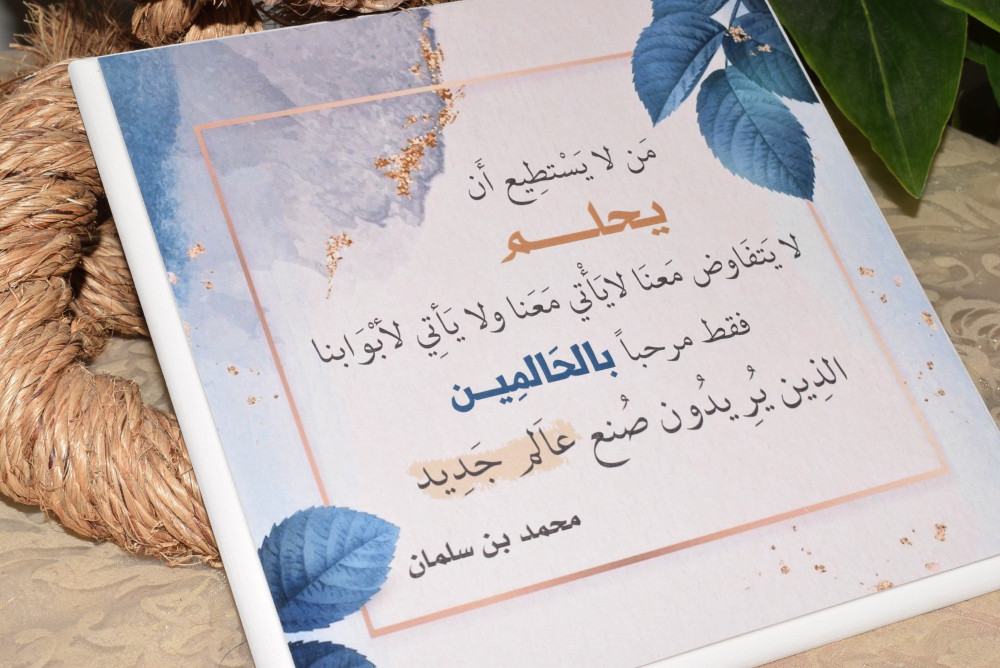 مَن لا يَسْتطِيع أَن
يحلم
لا يَتفَاوض مَعنَا لايَأْتي مَعَنا ولا يَأتِي لأبْوَابنا
فقط مرحباً بالحَالمِين
الذِين يِرُيدُون صُنع عالَم جَدِيد
محمد بن سلمان